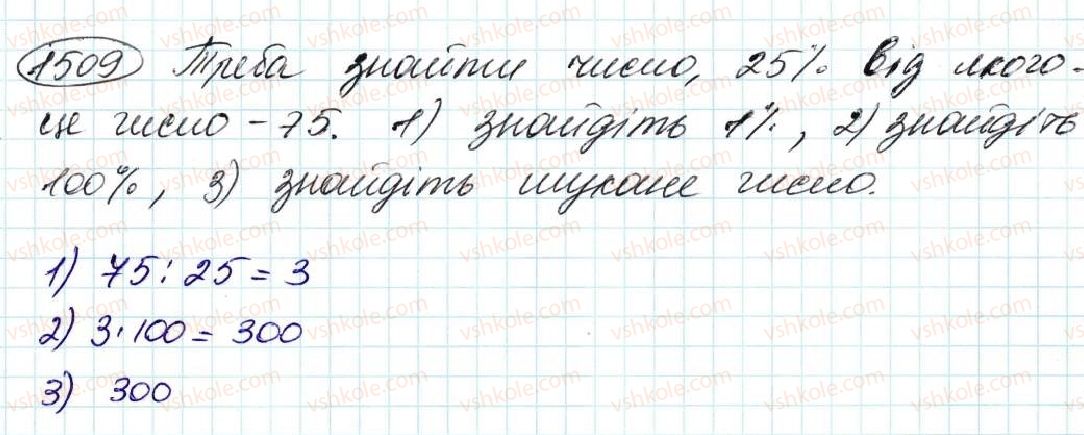 1509 Треба знайти число, 25% від якого -
це число - 75. 1) знайдіть 1%, 2) знайдіть
100%, 3) знайдіть шукане число.
1) 75 : 25 = 3
2) 3 · 100 = 300
3) 300